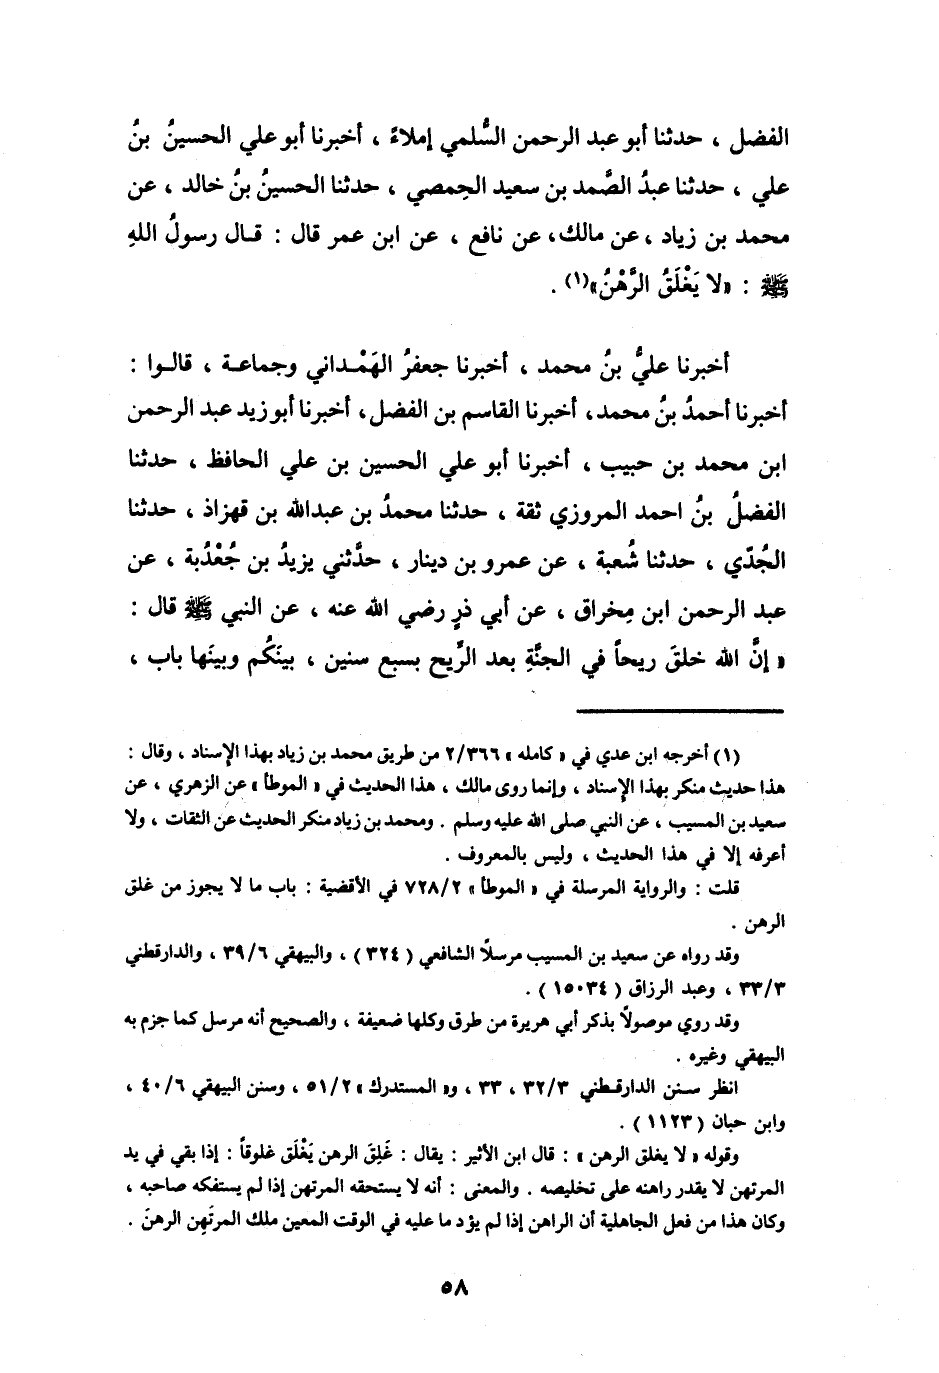 الفضل ، حدثنا أبو عبد الرحمن السُّلمي إملاءً ، أخبرنا أبو علي الحسينُ بنُ
علي ، حدثنا عبدُ الصَّمد بن سعيد الحِمصي ، حدثنا الحسينُ بنُ خالد ، عن
محمد بن زياد ، عن مالك، عن نافع ، عن ابن عمر قال : قـال رسولُ اللهِ
ﷺ : «لا يَغْلَقُ الرَّهْنُ»(١) .
أخبرنا عليُّ بنُ محمد ، أخبرنا جعفرُ الهَمْـداني وجماعـة ، قالـوا :
أخبرنا أحمدُ بنُ محمد، أخبرنا القاسم بن الفضل، أخبرنا أبو زيد عبد الرحمن
ابن محمد بن حبيب ، أخبرنا أبو علي الحسين بن علي الحافظ ، حدثنا
الفضلُ بنُ احمد المروزي ثقة ، حدثنا محمدُ بن عبدالله بن قهزاذ ، حدثنا
الجُدّي ، حدثنا شُعبة ، عن عمرو بن دينار ، حدَّثني يزيدُ بن جُعْدُبة ، عن
عبد الرحمن ابن مِخراق ، عن أبي ذرٍ رضي الله عنه ، عن النبي ﷺ قال :
« إنَّ الله خلقَ ريحاً في الجنَّةِ بعد الرِّيح بسبع سنين ، بينَكُم وبينَها باب ،
(١) أخرجه ابن عدي في « كامله » ٢/٣٦٦ من طريق محمد بن زياد بهذا الإسناد ، وقال :
هذا حديث منكر بهذا الإسناد ، وإنما روى مالك ، هذا الحديث في « الموطأ » عن الزهري ، عن
سعيد بن المسيب ، عن النبي صلى الله عليه وسلم . ومحمد بن زياد منكر الحديث عن الثقات ، ولا
أعرفه إلا في هذا الحديث ، وليس بالمعروف .
قلت : والرواية المرسلة في « الموطأ » ٧٢٨/٢ في الأقضية : باب ما لا يجوز من غلق
الرهن .
وقد رواه عن سعيد بن المسيب مرسلًا الشافعي ( ٣٢٤ ) ، والبيهقي ٣٩/٦ ، والدارقطني
٣٣/٣ ، وعبد الرزاق ( ١٥٠٣٤ ) .
وقد روي موصولاً بذكر أبي هريرة من طرق وكلها ضعيفة ، والصحيح أنه مرسل كما جزم به
البيهقي وغيره .
انظر سـنن الدارقـطني ٣٢/٣ ، ٣٣ ، و« المستدرك » ٥١/٢ ، وسنن البيهقي ٤٠/٦ ،
وابن حبان ( ١١٢٣ ) .
وقوله « لا يغلق الرهن » : قال ابن الأثير : يقال : غَلِقَ الرهن يَغْلَق غلوقاً : إذا بقي في يد
المرتهن لا يقدر راهنه على تخليصه . والمعنى : أنه لا يستحقه المرتهن إذا لم يستفكه صاحبه ،
وكان هذا من فعل الجاهلية أن الراهن إذا لم يؤد ما عليه في الوقت المعين ملك المرتَهِن الرهنَ .
٥٨